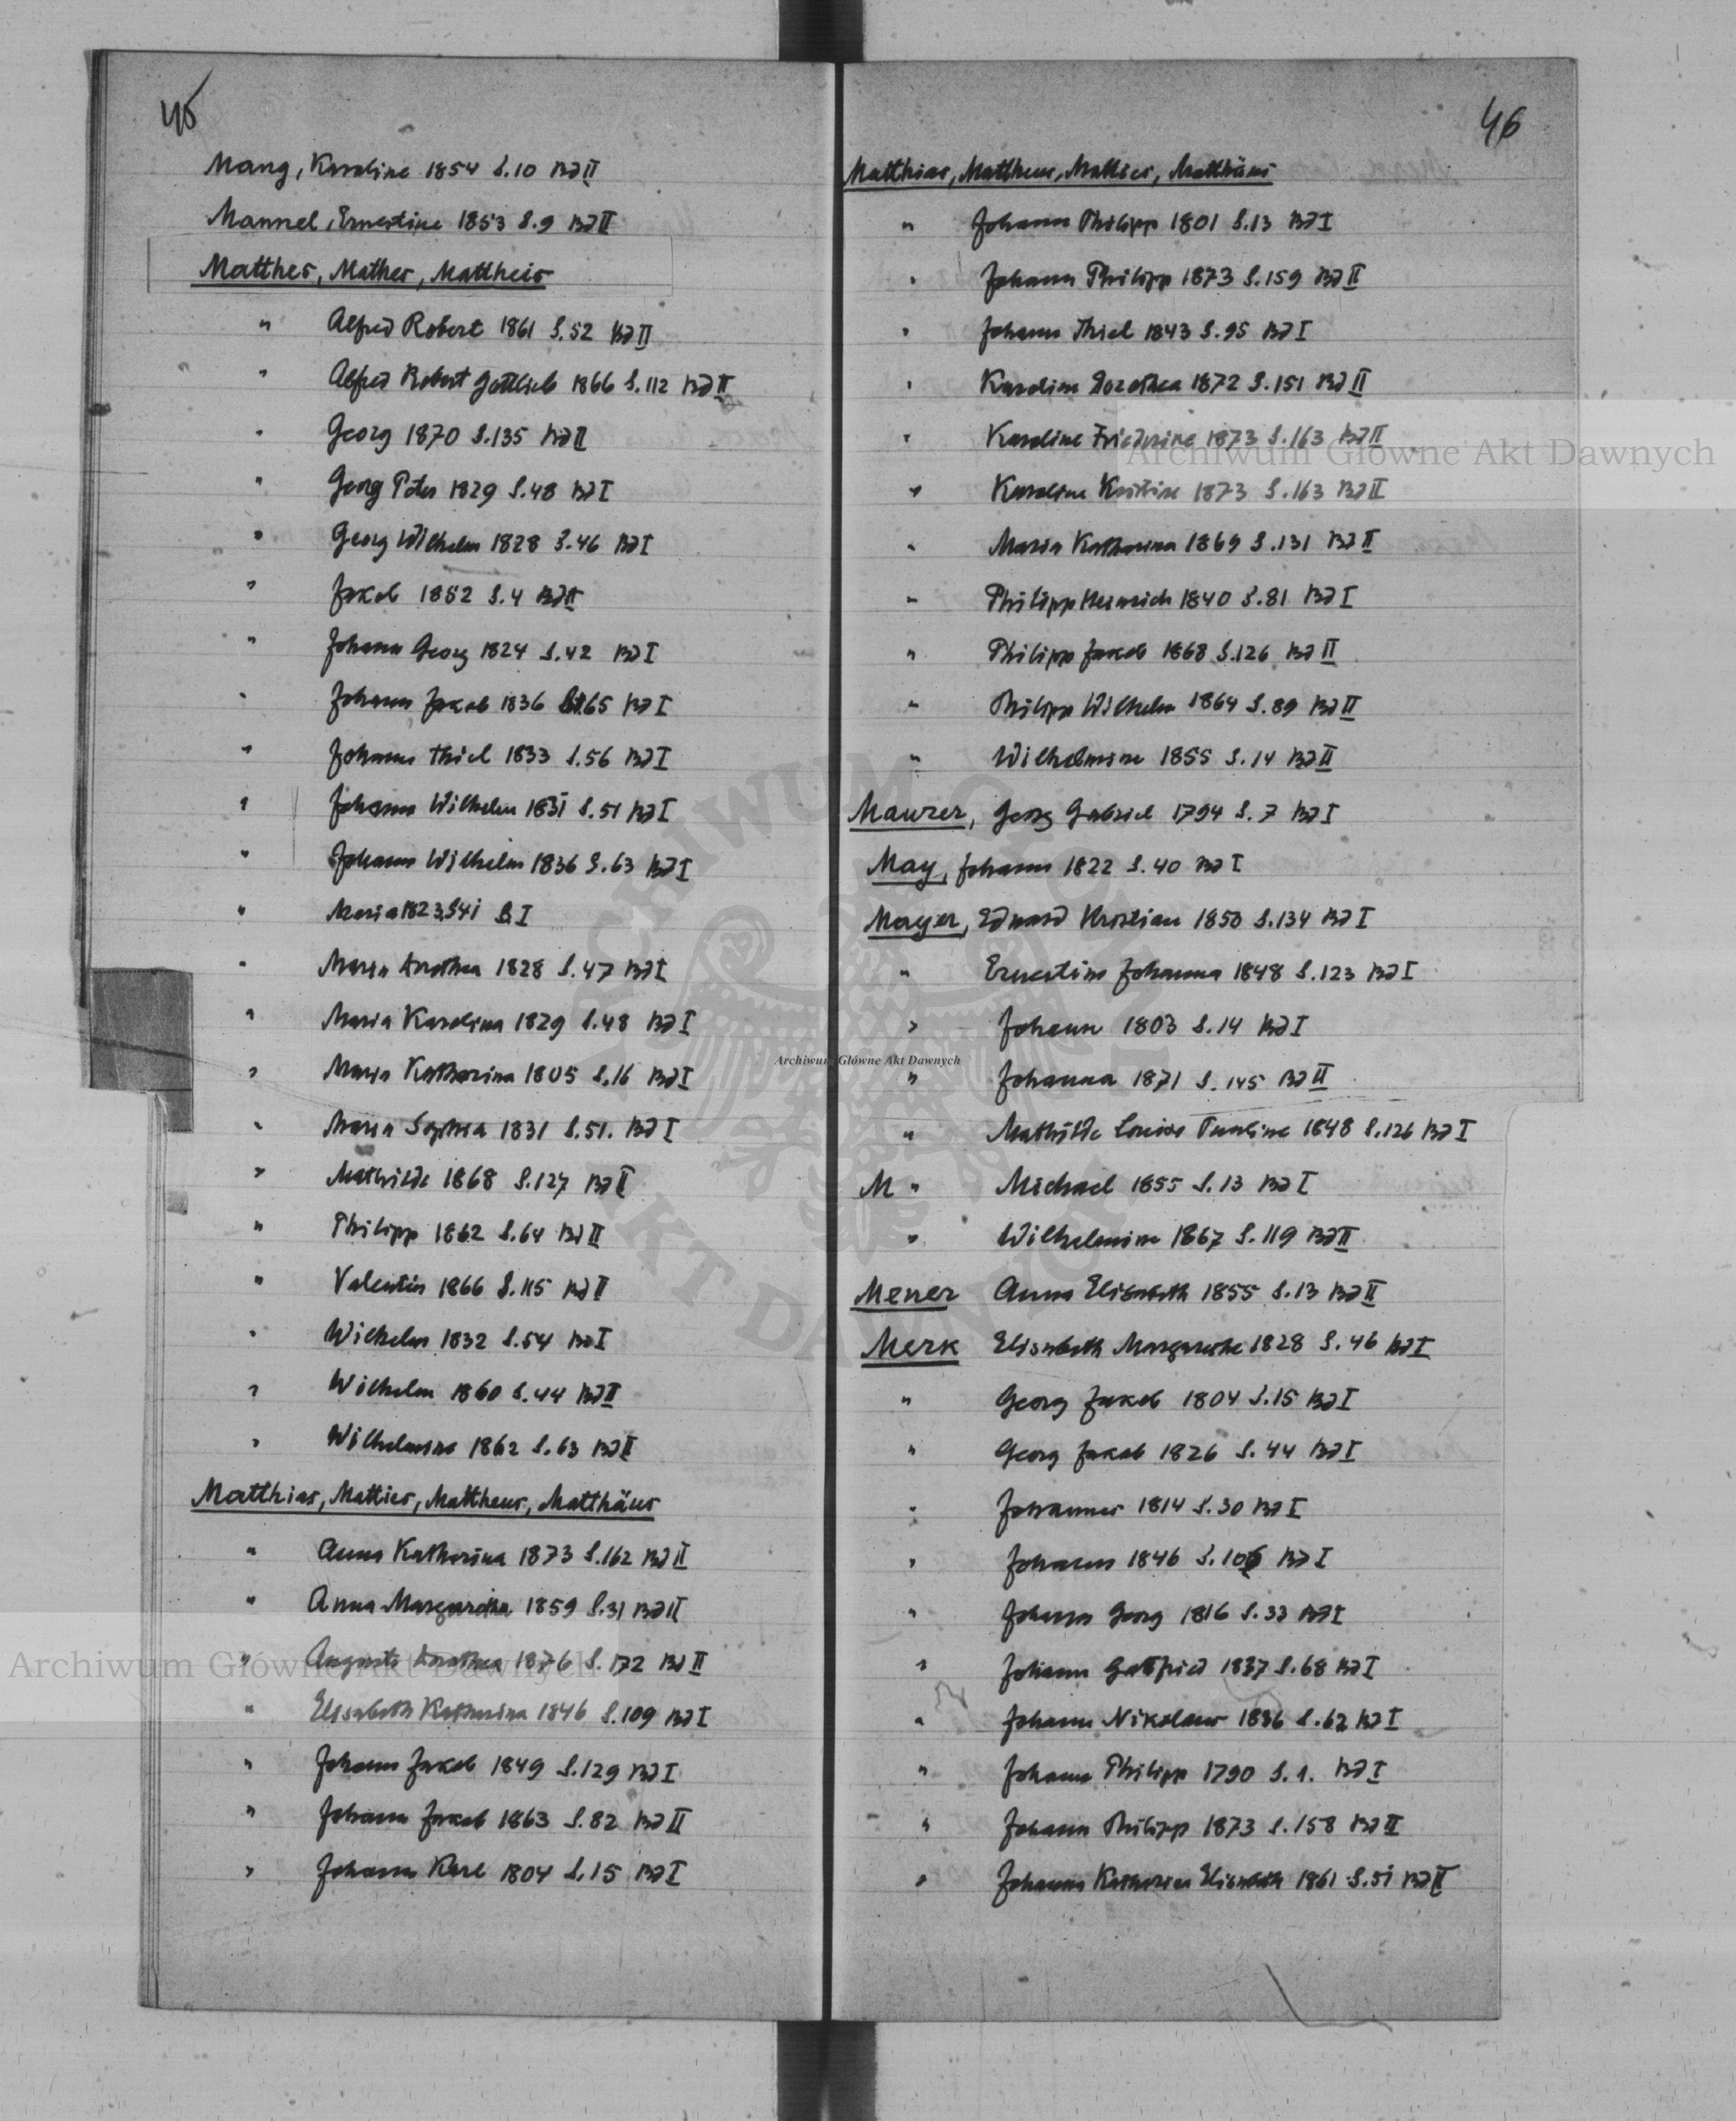 45
Mang, Karoline 1854 S.10 Bd II
Mannel, Ernestine 1853 S.9 Bd II
Matthes, Mathes, Mattheis
" Alfred Robert 1861 S.52 Bd II
" Alfred Robert Gottlieb 1866 S.112 Bd II
" Georg 1870 S.135 Bd II
" Georg Peter 1829 S.48 Bd I
" Georg Wilhelm 1828 S.46 Bd I
" Jakob 1852 S.4 Bd II
" Johann Georg 1824 S.42 Bd I
" Johann Jakob 1836 65 Bd I
" Johann Thiel 1833 S.56 Bd I
" Johann Wilhelm 1831 S.51 Bd I
" Johann Wilhelm 1836 S.63 Bd I
" Maria 1823 S41 B I
" Maria Dorothea 1828 S.47 Bd I
" Maria Karolina 1829 S.48 Bd I
" Maria Katharina 1805 S.16 Bd I
" Maria Sophia 1831 S.51. Bd I
" Mathilde 1868 S.127 Bd II
" Philipp 1862 S.64 Bd II
" Valentin 1866 S.115 Bd II
" Wilhelm 1832 S.54 Bd I
" Wilhelm 1860 S.44 Bd II
" Wilhelmine 1862 S.63 Bd II
Matthias, Matties, Mattheus, Matthäus
" Anna Katharina 1873 S.162 Bd II
" Anna Margaretha 1859 S.31 Bd II
" Auguste Dorothea 1876 S.172 Bd II
" Elisabeth Katharina 1846 S.109 Bd I
" Johann Jakob 1849 S.129 Bd I
" Johann Jakob 1863 S.82 Bd II
" Johann Karl 1804 S.15 Bd I
46
Matthias, Mattheus, Matties, Matthäus
" Johann Philipp 1801 S.13 Bd I
" Johann Philipp 1873 S.159 Bd II
" Johann Thiel 1843 S.95 Bd I
" Karoline Dorothea 1872 S.151 Bd II
" Karoline Friederike 1873 S.163 Bd II
" Karoline Kristine 1873 S.163 Bd II
" Maria Katharina 1869 S.131 Bd II
" Philipp Heinrich 1840 S.81 Bd I
" Philipp Jakob 1868 S.126 Bd II
" Philipp Wilhelm 1864 S.89 Bd II
" Wilhelmine 1855 S.14 Bd II
Maurer, Georg Gabriel 1794 S.7 Bd I
May, Johann 1822 S.40 Bd I
Mayer, Eduard Kristian 1850 S.134 Bd I
" Ernestine Johanna 1848 S.123 Bd I
" Johann 1803 S.14 Bd I
" Johanna 1871 S.145 Bd II
" Mathilde Louise Pauline 1848 S.126 Bd I
M " Michael 1855 S.13 Bd I
" Wilhelmine 1867 S.119 Bd II
Mener Anna Elisabeth 1855 S.13 Bd II
Merk Elisabeth Margarethe 1828 S.46 Bd I
" Georg Jakob 1804 S.15 Bd I
" Georg Jakob 1826 S.44 Bd I
" Johannes 1814 S.30 Bd I
" Johannes 1846 S.106 Bd I
" Johann Georg 1816 S.33 Bd I
" Johann Gottfried 1837 S.68 Bd I
" Johann Nikolaus 1836 S.62 Bd I
" Johann Philipp 1790 S.1. Bd I
" Johann Philipp 1873 S.158 Bd II
" Johanna Katharina Elisabeth 1861 S.51 Bd II
Archiwum Główne Akt Dawnych
Archiwum Główne Akt Dawnych
Archiwum Główne Akt Dawnych